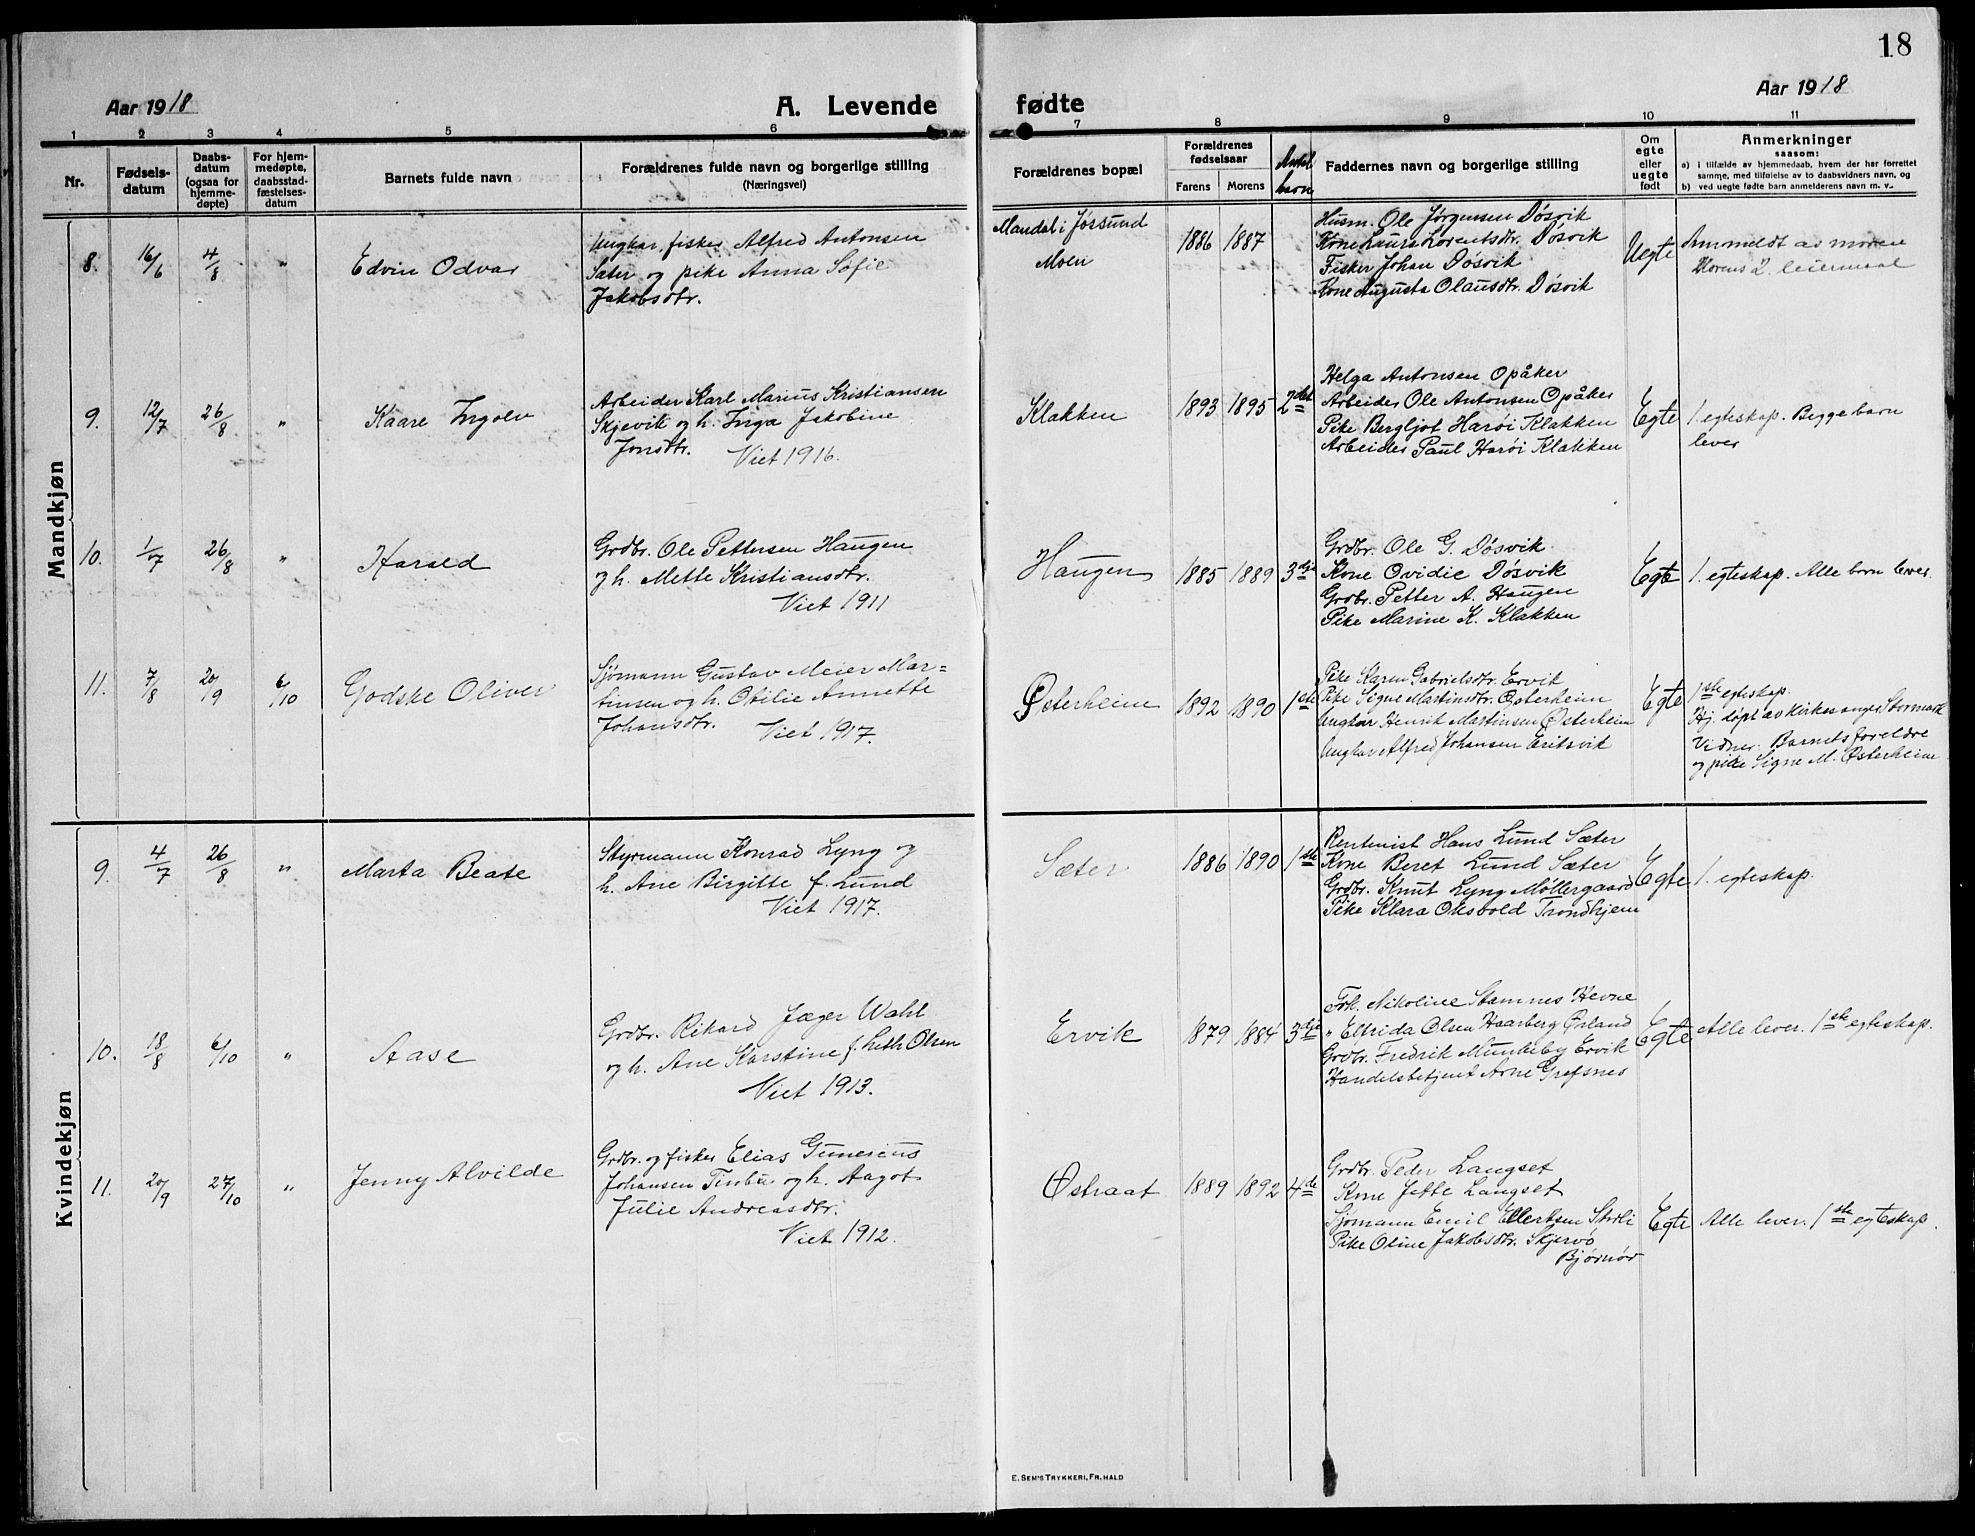 18
Aar 1918
A. Levende fødte
Aar 1918
1 2 3 4 5 6 7 8 9 10 11
Nr.
Fødsels-
datum
Daabs-
datum
(ogsaa for
hjemme-
døpte)
For hjem-
medøpte,
daabsstad-
fæstelses-
datum
Barnets fulde navn
Forældrenes fulde navn og borgerlige stilling
(Næringsvei)
Forældrenes bopæl
Forældrenes
fødselsaar
Farens Morens
Antal
barn
Faddernes navn og borgerlige stilling
Om
egte
eller
uegte
født
Anmerkninger
saasom:
a) i tilfælde av hjemmedaab, hvem der har forrettet
samme, med tilføielse av to daabsvidners navn, og
b) ved uegte fødte barn anmelderens navn m. v..
Mandkjøn
8. 16/6 4/8 "
Edvin Odvar
Ungkar, fisker Alfred Antonsen
Sæter og pike Anna Sofie
Jakobsdtr.
Mandal i Jøssund
Moen
1886 1887
Husm. Ole Jørgensen Døsvik
Kone Laura Lorentsdtr. Døsvik
Fisker Johan Døsvik
Kone Augusta Olausdtr. Døsvik
Uegte
Anmeldt av moren
Morens 2. leiermaal
9. 12/7 26/8 "
Kaare Ingolv
Arbeider Karl Marius Kristiansen
Skjevik og h. Inga Jakobine
Jonsdtr. Viet 1916.
Klakken
1893 1895 2det
Helga Antonsen Opåker
Arbeider Ole Antonsen Opåker
Pike Bergljot Harøi Klakken
Arbeider Paul Harøi Klakken
Egte
1. egteskap. Begge barn
lever
10. 1/7 26/8 "
Harald
Grdbr. Ole Pettersen Haugen
og h. Mette Kristiansdtr.
Viet 1911
Haugen
1885 1889 3dje
Grdbr. Ole G. Døsvik
Kone Ovidie Døsvik
Grdbr. Petter A. Haugen
Pike Marine K. Klakken
Egte
1. egteskap. Alle barn lever.
11. 7/8 20/9 6/10
Godske Oliver
Sjømann Gustav Meier Mar=
tinsen og h. Otilie Annette
Johansdtr. Viet 1917.
Østerheim
1892 1890 1ste
Pike Karen Gabrielsdtr. Ervik
Pike Signe Martinsdtr. Østerheim
Ungkar Henrik Martinsen Østerheim
Ungkar Alfred Johansen Eritsvik
Egte
1ste egteskap.
Hj. døpt av kirkesanger Stormark
Vidner: Barnets foreldre
og pike Signe M. Østerheim
Kvindekjøn
9. 4/7 26/8 "
Marta Beate
Styrmann Konrad Lyng og
h. Ane Birgitte f. Lund
Viet 1917.
Sæter
1886 1890 1ste
Rentenist Hans Lund Sæter
Kone Beret Lund Sæter
Grdbr. Knut Lyng Møllergaard
Pike Klara Oksvold Trondhjem
Egte
1. egteskap.
10. 18/8 6/10 "
Aase
Grdbr. Rikard Jæger Wahl
og h. Ane Karstine f. Leth Olsen
Viet 1913.
Ervik
1879 1884 3dje
Frk. Nikoline Stamnes Hevne
" Elfrida Olsen Haarberg Ørland
Grdbr. Fredrik Munkeby Ervik
Handelsbetjent Arne Grefsnes
Egte
Alle lever. 1ste egteskap.
11. 20/9 27/10 "
Jenny Alvilde
Grdbr. og fisker Elias Gunerius
Johansen Tinbu og h. Aagot
Julie Andreasdtr.
Viet 1912.
Østraat
1889 1892 4de
Grdbr. Peder Langset
Kone Jette Langset
Sjømann Emil Ellertsen
Pike Oline Jakobsdtr. Skjervø
Bjørnør
Egte
Alle lever. 1ste egteskap.
E. SEM'S TRYKKERI, FR.HALD